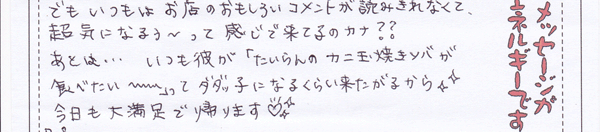 でも いつもは お店のおもしろいコメントが 読みきれなくて、
超 気になるぅ〜って 感じで来てるのカナ??
あとは… いつも彼が「たいらんの カニ玉焼きソバが
食べたい〜〜」って ダダッ子になるくらい来たがるから
今日も大満足で帰ります♡
メッセージが
エネルギーです